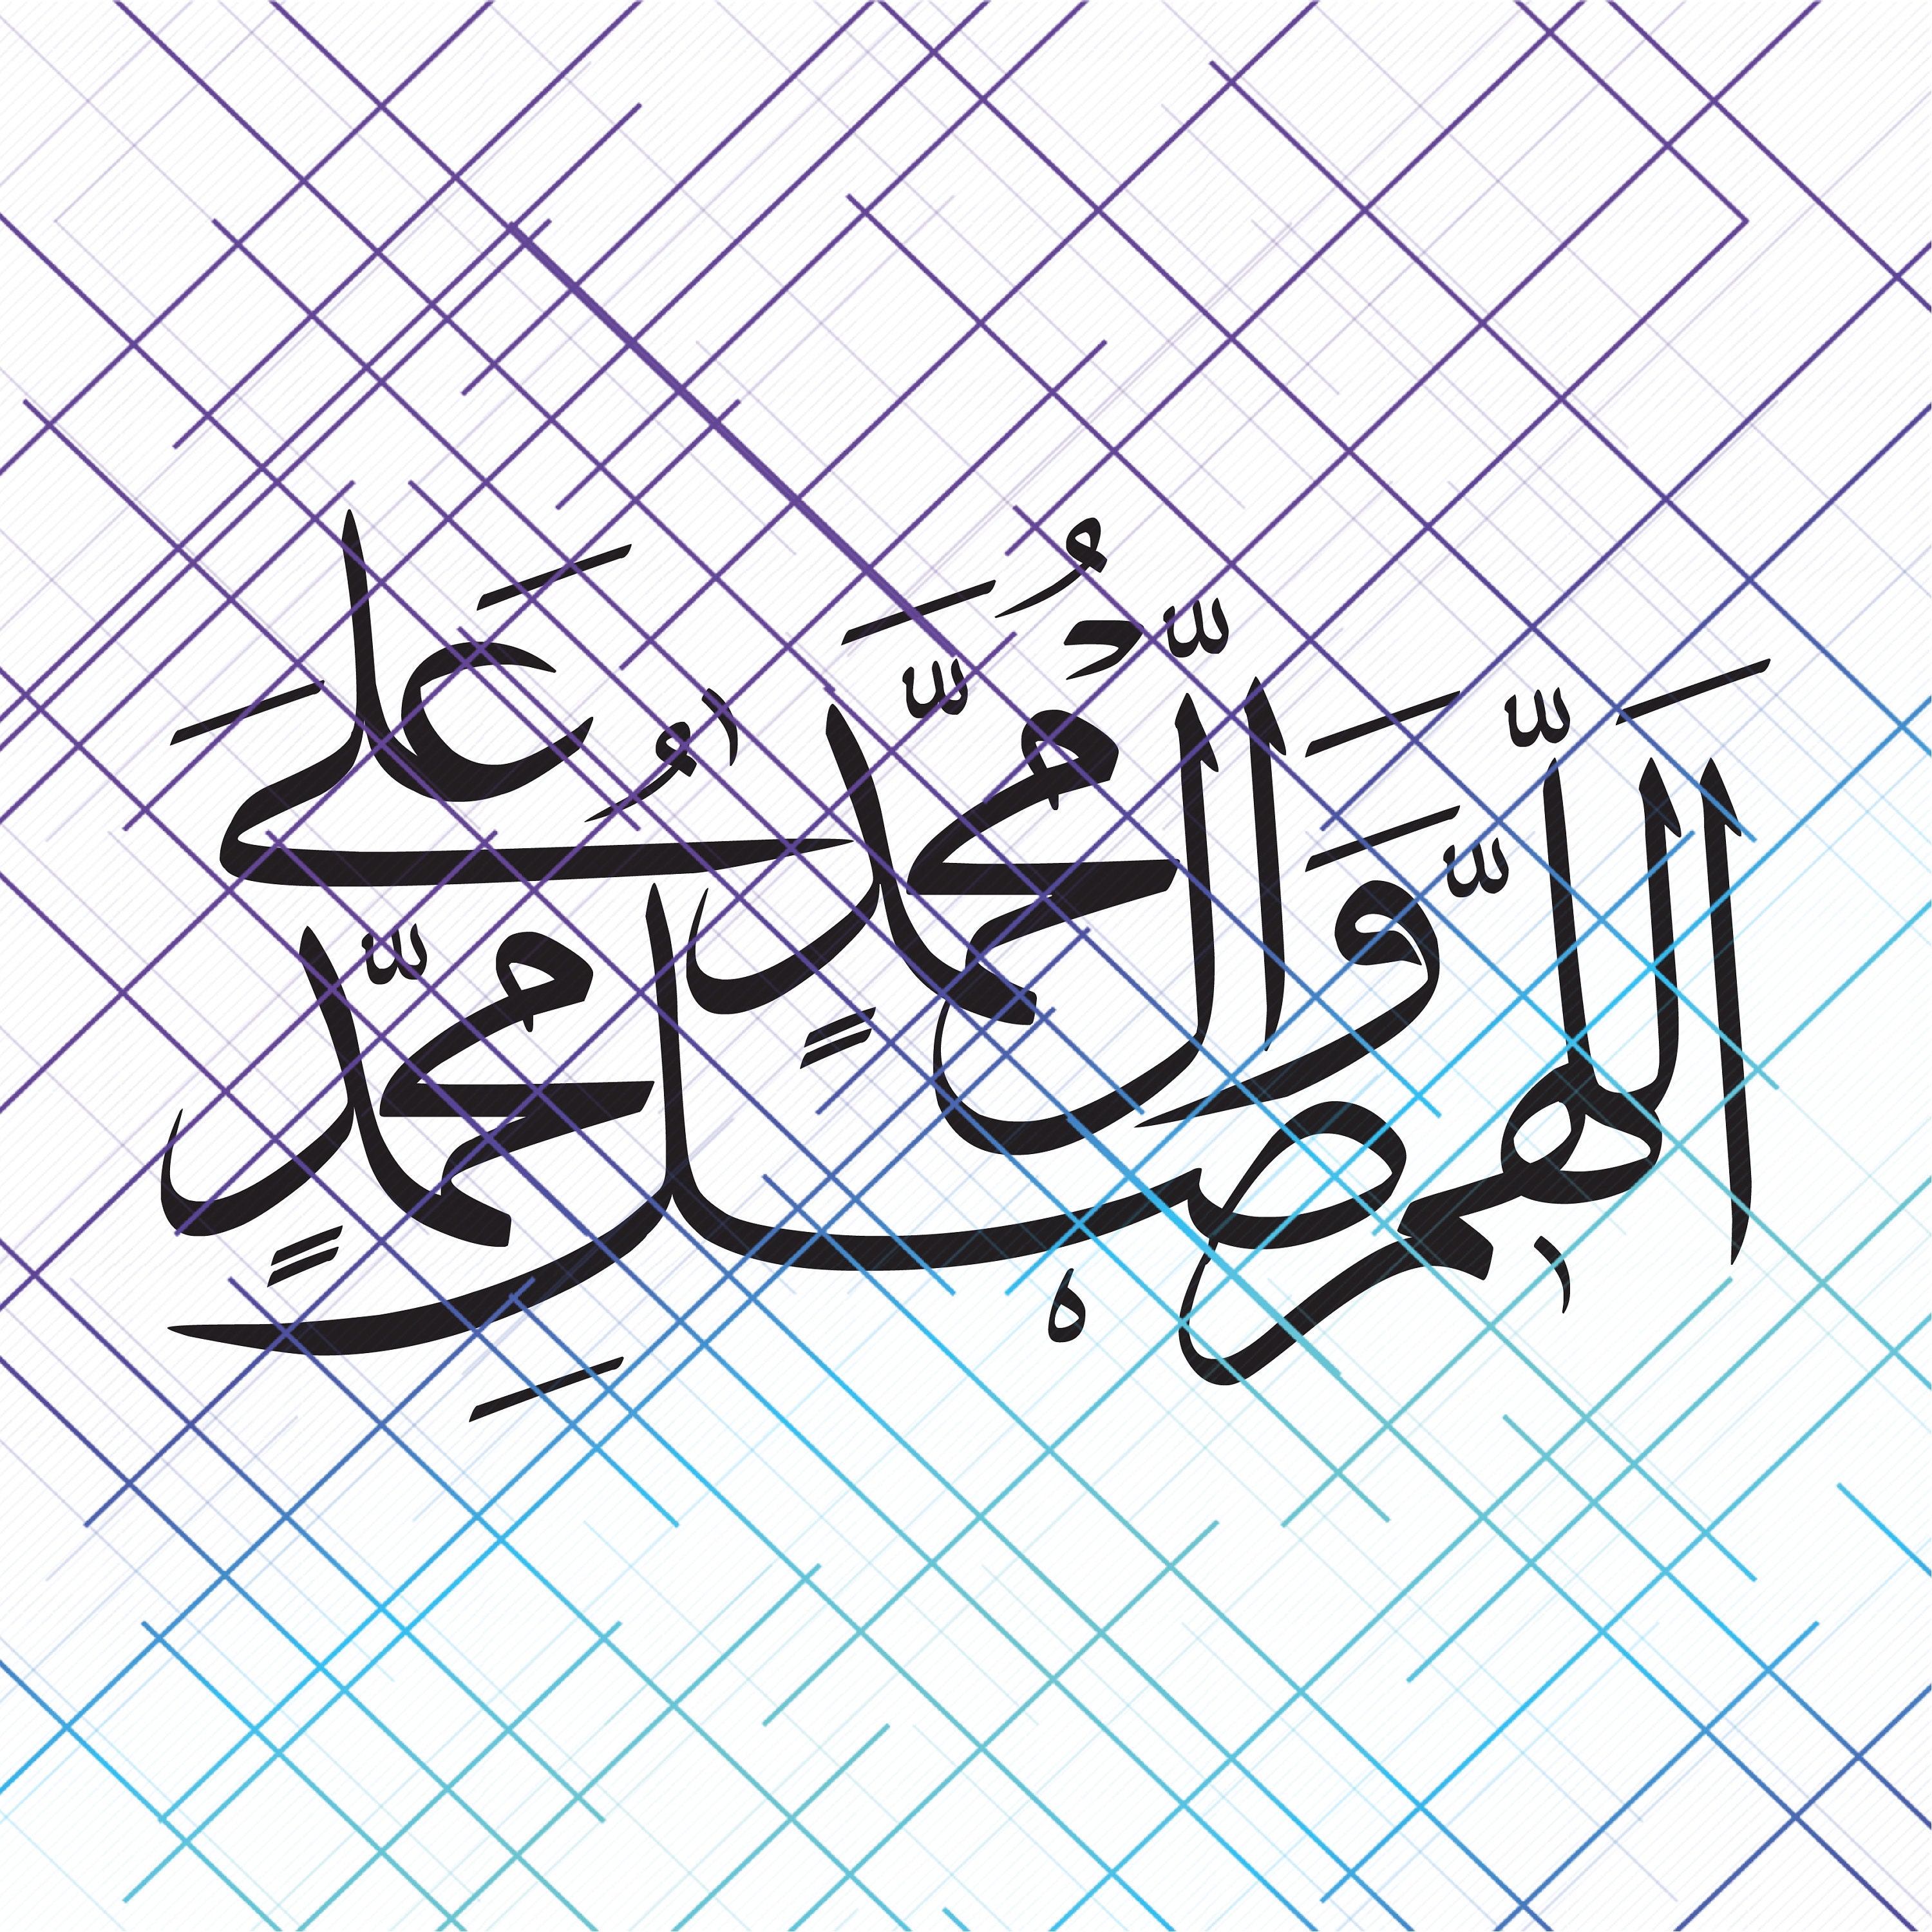 اللّٰهُمَّ صَلِّ عَلَى مُحَمَّدٍ وَّالِ مُحَمَّدٍ